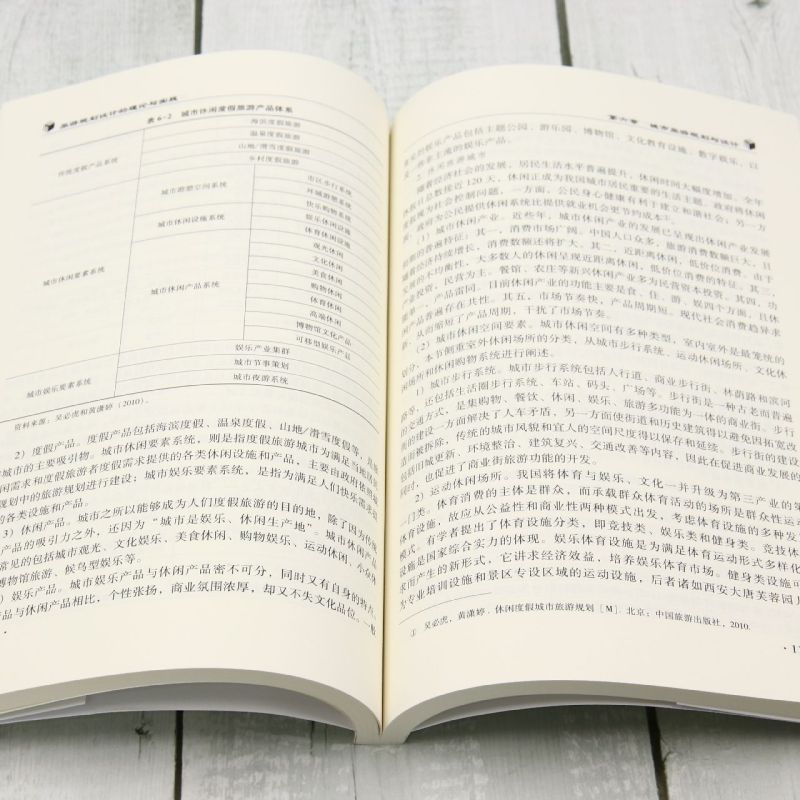 旅游规划设计的理论与实践
表6-2 城市休闲度假旅游产品体系
传统度假产品系统
海滨度假旅游
温泉度假旅游
山地/滑雪度假旅游
乡村度假旅游
城市休闲要素系统
城市游憩空间系统
市区步行系统
环城游憩系统
城市休闲设施系统
快乐购物系统
娱乐休闲设施
体育休闲设施
城市休闲产品系统
观光休闲
文化休闲
美食休闲
购物休闲
体育休闲
高端休闲
博物馆文化产品
可移型娱乐产品
城市娱乐要素系统
娱乐产业集群
城市节事策划
城市夜游系统
资料来源:吴必虎和黄潇婷(2010)。
2)度假产品。度假产品包括海滨度假、温泉度假、山地/滑雪度假等,
城市的主要吸引物。城市休闲要素系统,则是指度假旅游城市为满足当地居民
闲需求和度假旅游者度假需求提供的各类休闲设施和产品,主要由政府依据城
规划中的旅游规划进行建设;城市娱乐要素系统,是指为满足人们快乐需求
的各类设施和产品。
3)休闲产品。城市之所以能够成为人们度假旅游的目的地,除了因为传统
产品的吸引力之外,还因为“城市是娱乐、休闲生产地”。城市休闲产品
常见的包括城市观光、文化娱乐、美食休闲、购物娱乐、运动休闲、小众休
博物馆旅游、候鸟型娱乐等。
)娱乐产品。城市娱乐产品与休闲产品密不可分,同时又有自身的特点。
与休闲产品相比,个性张扬,商业氛围浓厚,却又不失文化品位。一般
第六章 城市旅游规划与设计
常见的娱乐产品包括主题公园、游乐园、博物馆、文化教育设施、数字娱乐,以
及非主流的娱乐产品。
2. 休闲旅游城市
随着经济社会的发展,居民生活水平普遍提升,休闲时间大幅度增加。全年
休假日总数接近120天,休闲正成为我国城市居民重要的生活主题。政府将休闲
视为社会控制问题,一方面,公民身心健康有利于建立和谐社会;另一方
面,政府为公民提供休闲系统比提供就业机会更节约成本①。
(1)城市休闲产业。近些年,城市休闲产业的发展已呈现出休闲产业发展
期的普遍特征:其一,消费市场广阔。中国人口众多,旅游消费数额巨大,且
随着经济持续增长,消费数额还将扩大。其二,近距离休闲,低价位消费。由于
发展的不均衡性,大多数人的休闲呈现近距离休闲,低价位消费的特征。其三,
产业投资,民营为主。餐馆、农庄等新兴休闲产业多为民营资本投资。其四,功
能单一,产品雷同。目前休闲产业的功能主要是食、住、游、娱四个方面,且休
闲产品普遍存在共性。其五,市场节奏快,产品周期短。现代社会消费趋异求
新,从而缩短了产品周期,干扰了市场节奏。
(2)城市休闲空间要素。城市休闲空间有多种类型,室内室外是最笼统的
划分,本节侧重室外休闲场所的分类,从城市步行系统、运动休闲场所、文化休
闲场所和休闲购物系统进行阐述。
1)城市步行系统。城市步行系统包括人行道、商业步行街、林荫路和滨河
路等,还包括生活圈步行系统、车站、码头、广场等。步行街是一种古老而普遍
的交通方式,是集购物、餐饮、休闲、娱乐、旅游多功能为一体的商业街。步行
街的建设一方面解决了人车矛盾,另一方面使街道和历史建筑得以避免因拓宽改
造而被拆除,传统的城市风貌和宜人的空间尺度得以保存和延续。步行街的建设
包括旧城更新、环境整治、建筑复兴、交通改善等内容,因此在促进商业发展的
同时,也促进了商业街旅游功能的开发。
2)运动休闲场所。我国将体育与娱乐、文化一并升级为第三产业的第
一门类。体育消费的主体是群众,而承载群众体育活动的场所是群众性运
体育设施,故应从公益性和商业性两种模式出发,考虑体育设施的多种发
模式。有学者提出了体育设施分类,即竞技类、娱乐类和健身类。竞技体
设施是国家综合实力的体现。娱乐体育设施是为满足体育运动形式多样化
求而产生的新形式,它讲求经济效益,培养娱乐体育市场。健身类设施可
为专业培训设施和景区专设区域的运动设施,后者诸如西安大唐芙蓉园儿
① 吴必虎,黄潇婷. 休闲度假城市旅游规划[M]. 北京:中国旅游出版社,2010.